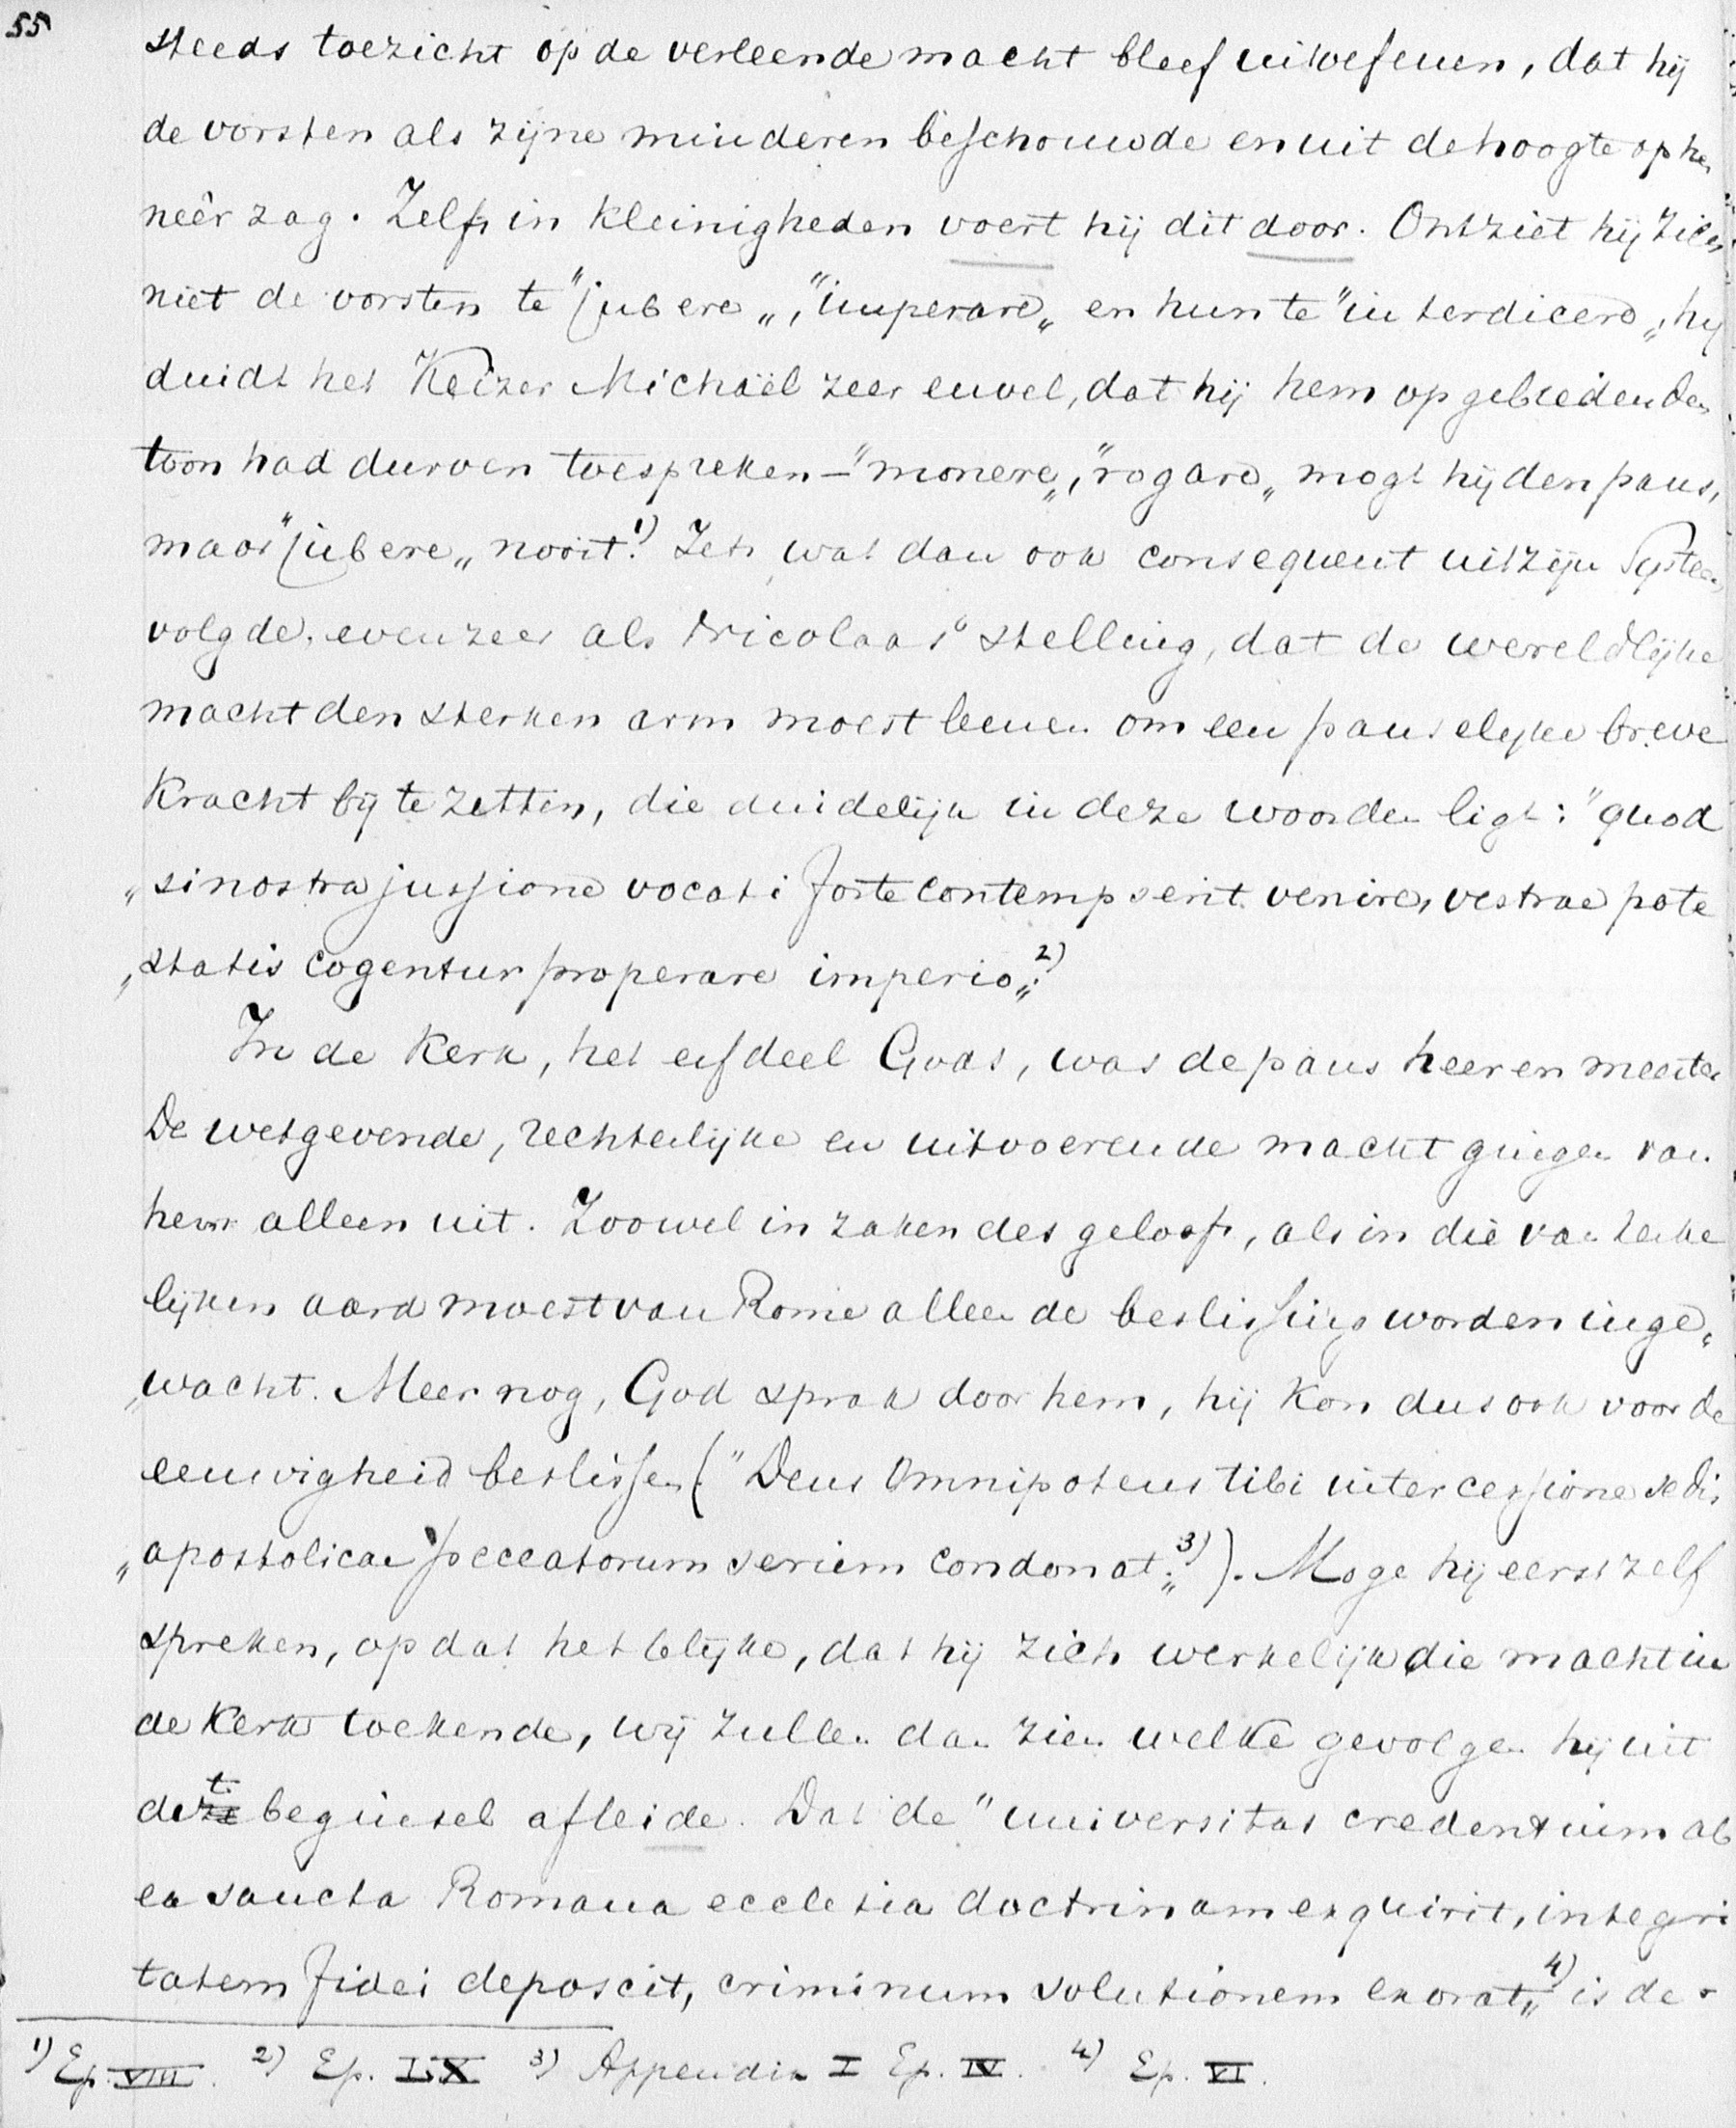 55
steeds toezicht op de verleende macht bleef uitoefenen, dat hij
de vorsten als zijne minderen beschouwde en uit de hoogte op hen
neêr zag. Zelfs in kleinigheden voert hij dit door. Ontziet hij zich
niet de vorsten te "jubere„, "imperare„ en hun te "interdicere„, hij
duidt het Keizer Michaël zeer euvel, dat hij hem op gebiedenden
toon had durven toespreken – "monere„, "rogare„ mogt hij den paus,
maar "jubere„ nooit.¹⁾ Iets wat dan ook consequent uit zijn systeem
volgde, evenzeer als Nicolaas' stelling, dat de wereldlijke
macht den sterken arm moest leenen om een pauselijke breve
kracht bij te zetten, die duidelijk in deze woorden ligt: "quod
„si nostra jussione vocati forte contempserit venire, vestrae pote
„statis cogentur properare imperio„.²⁾
In de Kerk, het erfdeel Gods, was de paus heer en meester
De wetgevende, rechterlijke en uitvoerende macht gingen van
hem alleen uit. Zoowel in zaken des geloofs, als in die van kerke
lijken aard moest van Rome alleen de beslissing worden inge„
„wacht. Meer nog, God sprak door hem, hij kon dus ook voor de
eeuwigheid beslissen ("Deus Omnipotens tibi intercessione sedis
„apostolicae peccatorum seriem condonat„.³⁾). Moge hij eerst zelf
spreken, opdat het blijke, dat hij zich werkelijk die macht in
de Kerk toekende, wij zullen dan zien welke gevolgen hij uit
det beginsel afleide. Dat de "universitas credentium ab
ea sancta Romana ecclesia doctrinam exquirit, integri
tatem fidei deposcit, criminum solutionem exorat„⁴⁾ is de
¹⁾ Ep. VIII. ²⁾ Ep. IX ³⁾ Appendix I Ep. IV. ⁴⁾ Ep. VI.